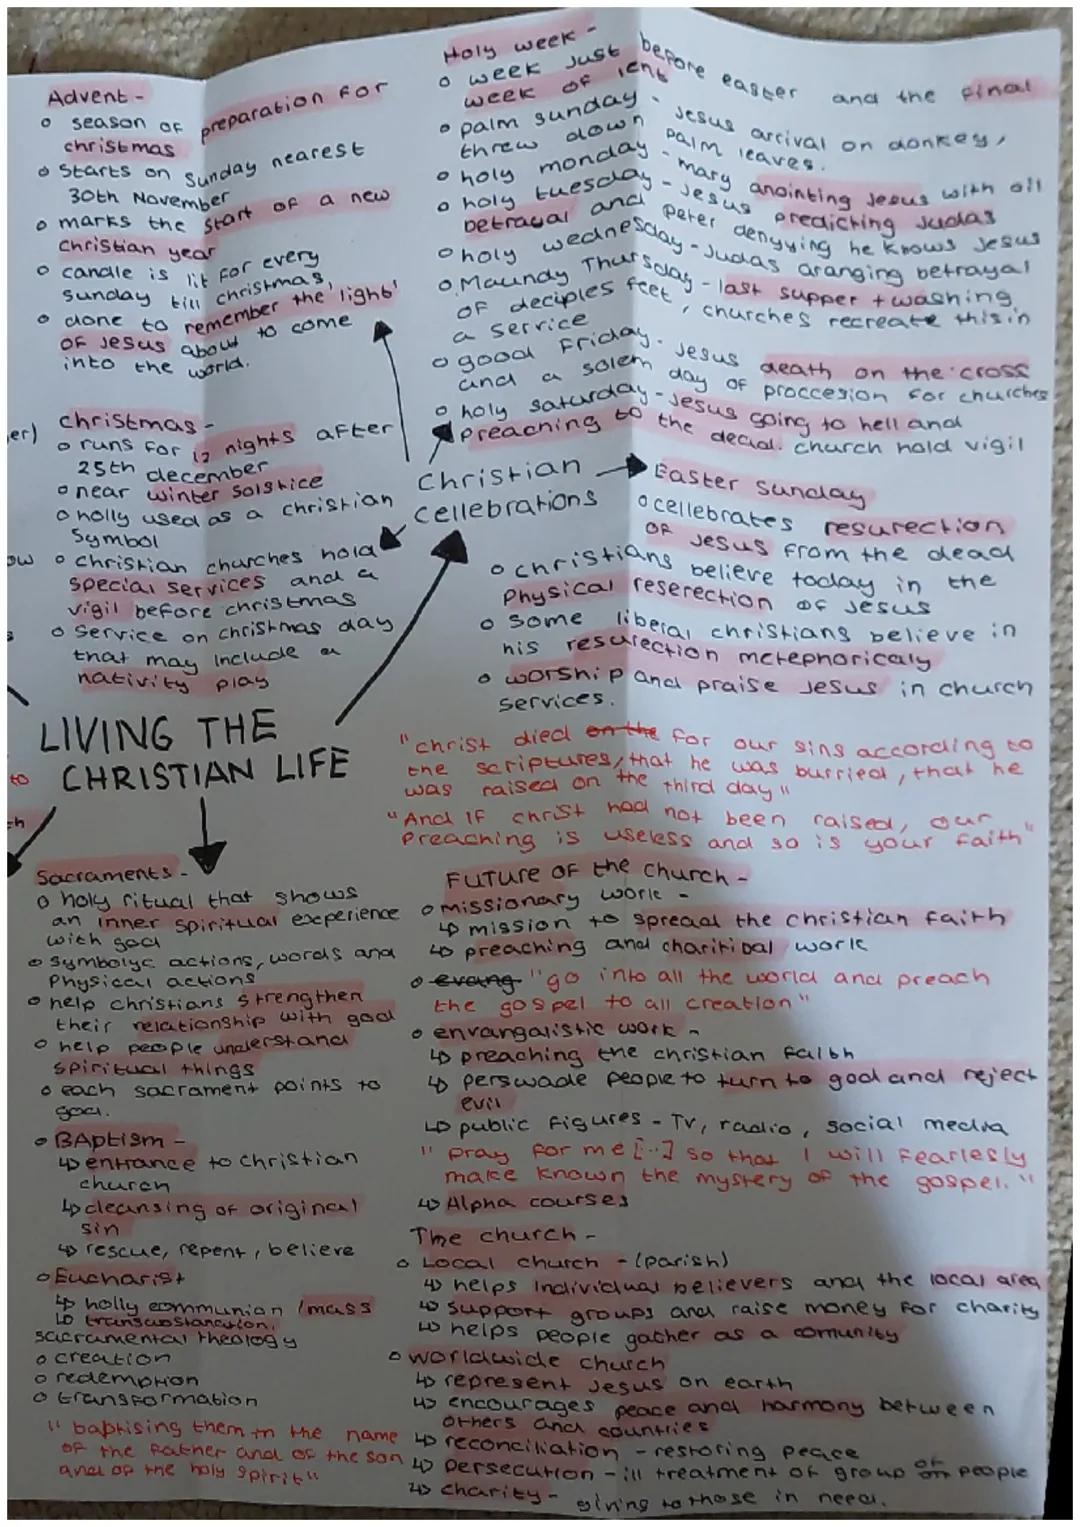 Advent -
o season of preparation for
christmas
o Starts on Sunday nearest
30th November
o marks the start of a new
christian year
o candle is lit for every
sunday till christmas,
o done to remember the 'light'
of Jesus about to come
into the world.
christmas -
o runs for 12 nights after
25th december
o near winter solstice
o holly used as a christian
Symbol
o christian churches hold
special services and a
vigil before christmas
o Service on christmas day
that may include a
nativity play
er)
ow
to
ch
LIVING THE
CHRISTIAN LIFE
Holy week -
o week just before easter and the final
week of lent
o palm sunday - Jesus arrival on donkey,
threw down palm leaves.
o holy monday - mary anointing Jesus with oil
o holy tuesday - Jesus predicting Judas
betrayal and peter denyying he knows Jesus
o holy wednesday - Judas aranging betrayal
o Maundy Thursday - last supper + washing
of deciples feet, churches recreate this in
a service
o good Friday - Jesus death on the cross
and a solem day of proccesion for churches
o holy saturday - Jesus going to hell and
preaching to the decid. church hold vigil
Christian
cellebrations
Easter Sunday
o cellebrates resurection
of Jesus from the dead
o christians believe today in the
Physical reserection of Jesus
o some liberal christians believe in
his resurection metephoricaly
o worship and praise Jesus in church
services.
"christ died on the for our sins according to
the scriptures, that he was burried, that he
was raised on the third day"
"And if christ had not been raised, our
Preaching is useless and so is your faith"
Sacraments -
o holy ritual that shows
an inner spiritual experience
with god
o symbolyc actions, words and
Physical actions
o help christians strengthen
their relationship with god
o help people understand
spiritual things
o each sacrament points to
god.
o BAptism -
↳ entrance to christian
church
↳ cleansing of original
sin
↳ rescue, repent, believe
o Eucharist
↳ holly communion / mass
↳ transubstanciation.
sacramental theology
o creation
o redemption
o transformation
"baptising them in the name
of the father and of the son
and of the holy spirit"
Future of the church -
o missionary work -
↳ mission to spread the christian faith
↳ preaching and charitibal work
o evang "go into all the world and preach
the gospel to all creation"
o envangalistic work -
↳ preaching the christian faith
↳ perswade people to turn to god and reject
evil
↳ public figures - Tv, radio, social media
"pray for me [..] so that I will fearlesly
make known the mystery of the gospel."
↳ Alpha courses
The church -
o Local church - (parish)
↳ helps individual believers and the local area
↳ support groups and raise money for charity
↳ helps people gather as a comunity
o worldwide church
↳ represent Jesus on earth
↳ encourages peace and harmony between
others and countries
↳ reconciliation - restoring peace
↳ persecution - ill treatment of group of people
↳ charity - giving to those in need.